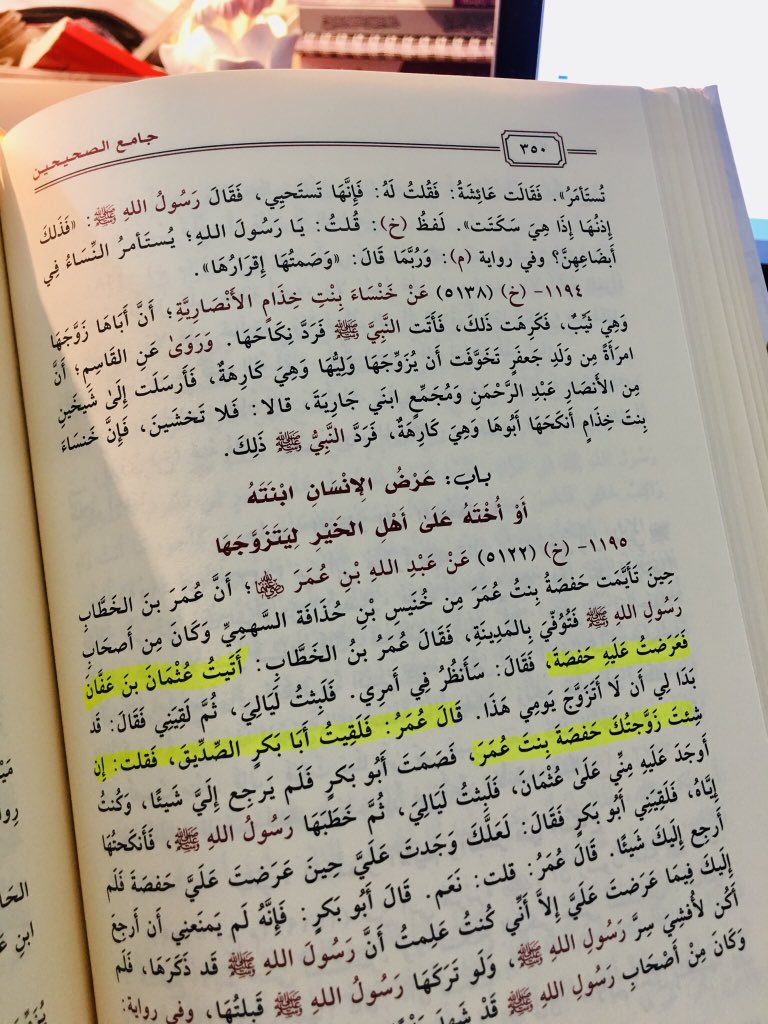 جامع الصحيحين
٣٥٠
تُستَأمَرُ». فَقَالَت عَائِشَةُ: فَقُلتُ لَهُ: فَإِنَّهَا تَستَحيِي، فَقَالَ رَسُولُ اللهِ ﷺ: «فَذَلكَ
إِذنُهَا إِذَا هِيَ سَكَتَت». لَفظُ (خ): قُلتُ: يَا رَسُولَ اللهِ؛ يُستَأمرُ النِّسَاءُ فِي
أَبضَاعِهِنَّ؟ وفي رواية (م): وَرُبَّمَا قَالَ: «وَصَمتُهَا إِقرَارُهَا».
١١٩٤- (خ) (٥١٣٨) عَنْ خَنْسَاءَ بِنْتِ خِذَامٍ الأَنْصَارِيَّةِ؛ أَنَّ أَبَاهَا زَوَّجَهَا
وَهِيَ ثَيِّبٌ، فَكَرِهَت ذَلكَ، فَأَتَت النَّبِيَّ ﷺ فَرَدَّ نِكَاحَهَا. وَرَوَىٰ عَنِ القَاسِمِ؛ أَنَّ
امرَأَةً مِن وَلَدِ جَعفَرٍ تَخَوَّفَت أَن يُزَوِّجَهَا وَلِيُّهَا وَهِيَ كَارِهَةٌ، فَأَرسَلَت إِلَىٰ شَيخَينِ
مِن الأَنصَارِ عَبْدِ الرَّحْمَنِ وَمُجَمِّعٍ ابنَي جَارِيَةَ، قالا: فَلا تَخشَينَ، فَإِنَّ خَنسَاءَ
بِنتَ خِذَامٍ أَنكَحَهَا أَبُوهَا وَهِيَ كَارِهَةٌ، فَرَدَّ النَّبِيُّ ﷺ ذَلِكَ.
بَاب: عَرْضُ الإِنْسَانِ ابْنَتَهُ
أَوْ أُخْتَهُ عَلَىٰ أَهْلِ الخَيْرِ لِيَتَزَوَّجَهَا
١١٩٥- (خ) (٥١٢٢) عَنْ عَبْدِ اللهِ بْنِ عُمَرَ ؛ أَنَّ عُمَرَ بنَ الخَطَّابِ
حِينَ تَأَيَّمَت حَفصَةُ بِنتُ عُمَرَ مِن خُنَيسِ بْنِ حُذَافَةَ السَّهمِيِّ وَكَانَ مِن أَصحَابِ
رَسُولِ اللهِ ﷺ فَتُوُفِّيَ بِالمَدِينَةِ، فَقَالَ عُمَرُ بنُ الخَطَّابِ: أَتَيتُ عُثْمَانَ بنَ عَفَّانَ
فَعَرَضتُ عَلَيهِ حَفصَةَ، فَقَالَ: سَأَنظُرُ فِي أَمرِي. فَلَبِثتُ لَيَالِيَ، ثُمَّ لَقِيَنِي فَقَالَ: قَد
بَدَا لِي أَن لَا أَتَزَوَّجَ يَومِي هَذَا. قَالَ عُمَرُ: فَلَقِيتُ أَبَا بَكرٍ الصِّدِّيقَ، فَقلت: إِن
شِئتَ زَوَّجتُكَ حَفصَةَ بِنتَ عُمَرَ، فَصَمَتَ أَبُو بَكرٍ فَلَم يَرجِع إِلَيَّ شَيئًا، وَكُنتُ
أَوجَدَ عَلَيهِ مِنِّي عَلَىٰ عُثْمَانَ، فَلَبِثتُ لَيَالِيَ، ثُمَّ خَطَبَهَا رَسُولُ اللهِ ﷺ، فَأَنكَحتُهَا
إِيَّاهُ، فَلَقِيَنِي أَبُو بَكرٍ فَقَالَ: لَعَلَّكَ وَجَدتَ عَلَيَّ حِينَ عَرَضتَ عَلَيَّ حَفصَةَ فَلَم
أَرجِع إِلَيكَ شَيئًا. قَالَ عُمَرُ: قلت: نَعَم. قَالَ أَبُو بَكرٍ: فَإِنَّهُ لَم يَمنَعنِي أَن أَرجِعَ
إِلَيكَ فِيمَا عَرَضتَ عَلَيَّ إِلاَّ أَنِّي كُنتُ عَلِمتُ أَنَّ رَسُولَ اللهِ ﷺ قَد ذَكَرَهَا، فَلَم
أَكُن لأُفشِيَ سِرَّ رَسُولِ اللهِ ﷺ، وَلَو تَرَكَهَا رَسُولُ اللهِ ﷺ قَبلتُهَا، وفي رواية:
وَكَانَ مِنْ أَصْحَابِ رَسُولِ اللهِ ﷺ قَدْ شَهِدَ